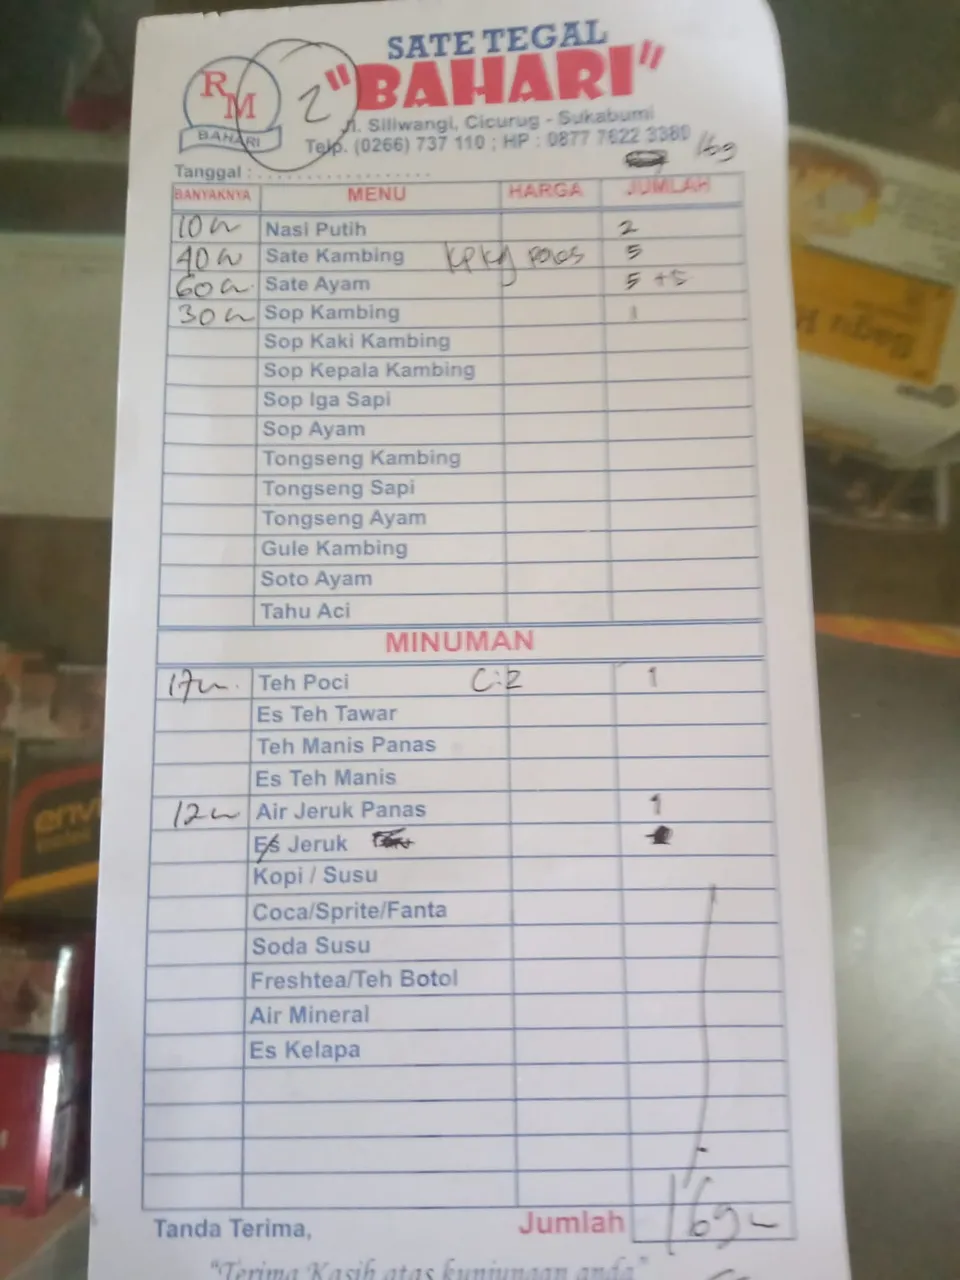 SATE TEGAL
"BAHARI"
RM
BAHARI
2
Jl. Siliwangi, Cicurug - Sukabumi
Telp. (0266) 737 110 ; HP : 0877 7622 3380
169
Tanggal : ..................
BANYAKNYA MENU HARGA JUMLAH
10 Nasi Putih 2
40 Sate Kambing 5
60 Sate Ayam 5 +5
30 Sop Kambing 1
Sop Kaki Kambing
Sop Kepala Kambing
Sop Iga Sapi
Sop Ayam
Tongseng Kambing
Tongseng Sapi
Tongseng Ayam
Gule Kambing
Soto Ayam
Tahu Aci
MINUMAN
17 Teh Poci C:2 1
Es Teh Tawar
Teh Manis Panas
Es Teh Manis
12 Air Jeruk Panas 1
Es Jeruk
Kopi / Susu
Coca/Sprite/Fanta
Soda Susu
Freshtea/Teh Botol
Air Mineral
Es Kelapa
Tanda Terima, Jumlah 169
"Terima Kasih atas kunjungan anda"